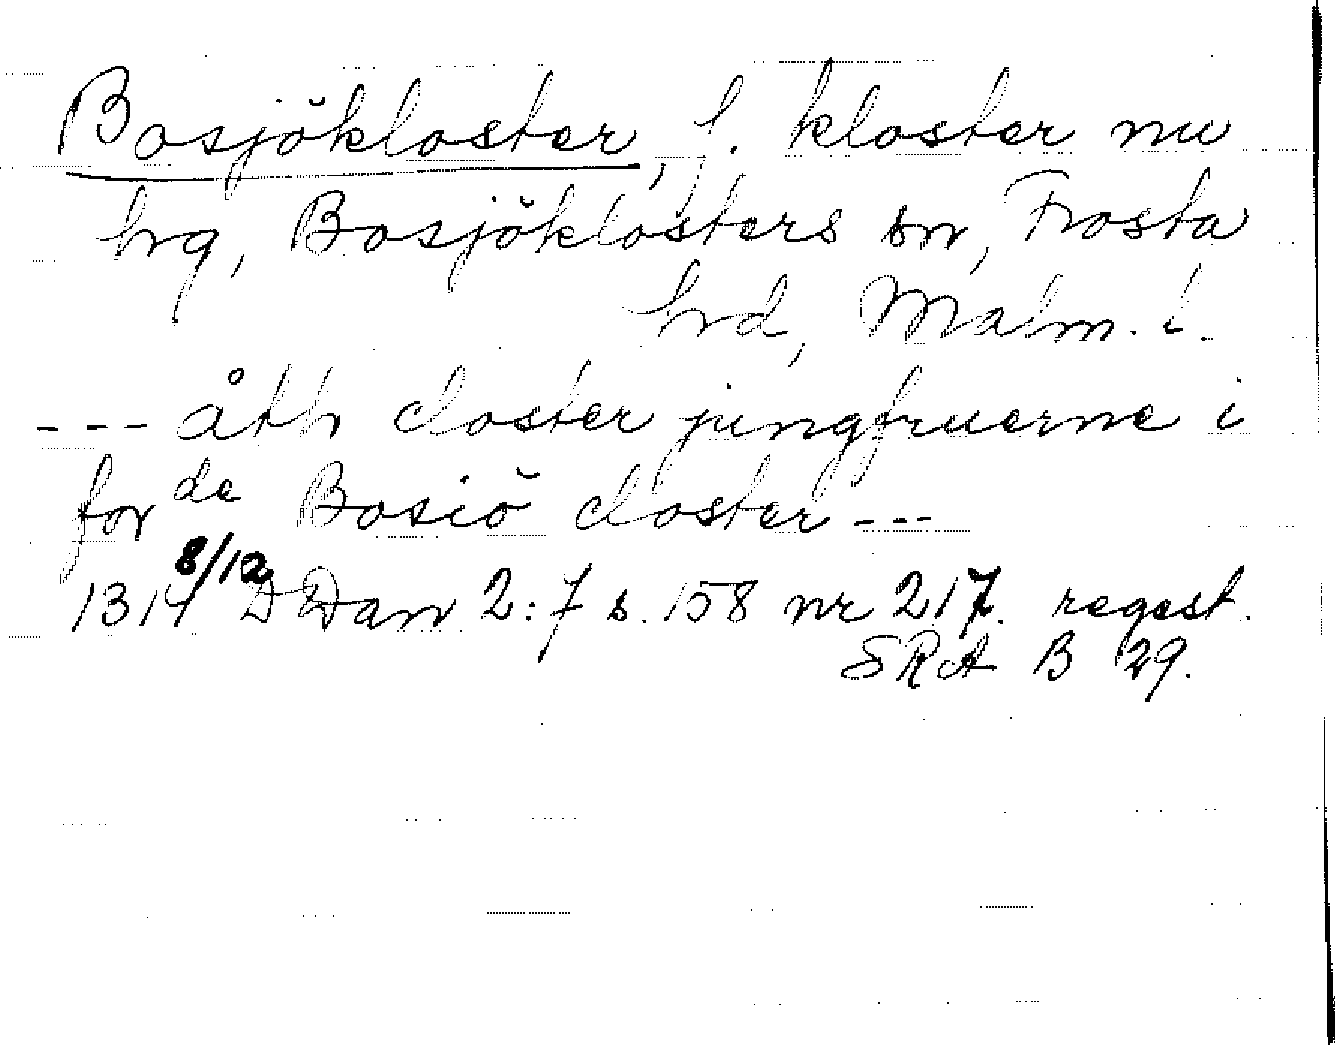 Bosjökloster, f. kloster nu
hrg, Bosjöklosters sn, Frosta
hrd, Malm. l.
--- åth closter jungfruerne i
for de Bosiö closter ---
1314 8/12 D Dan 2:7 s. 158 nr 217. regest.
SRA B 29.